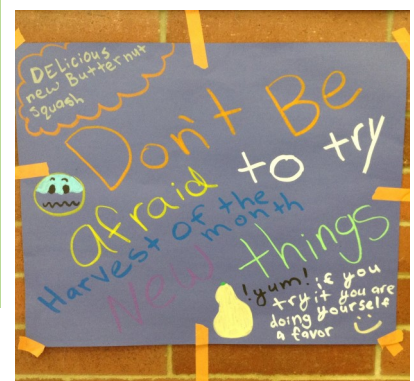 DELicious
new Butternut
Squash
Don't Be
afraid to try
Harvest of the
month
New things
!yum! if you
try it you are
doing yourself
a favor